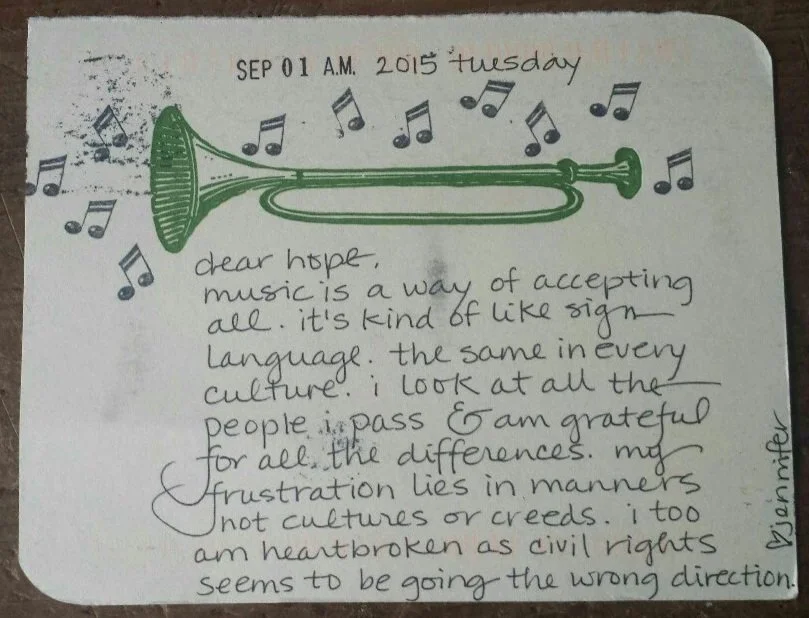 SEP 01 A.M. 2015 tuesday
dear hope,
music is a way of accepting
all. it's kind of like sign
language. the same in every
culture. i look at all the
people i pass & am grateful
for all the differences. my
frustration lies in manners
not cultures or creeds. i too
am heartbroken as civil rights
seems to be going the wrong direction.
♡jennifer